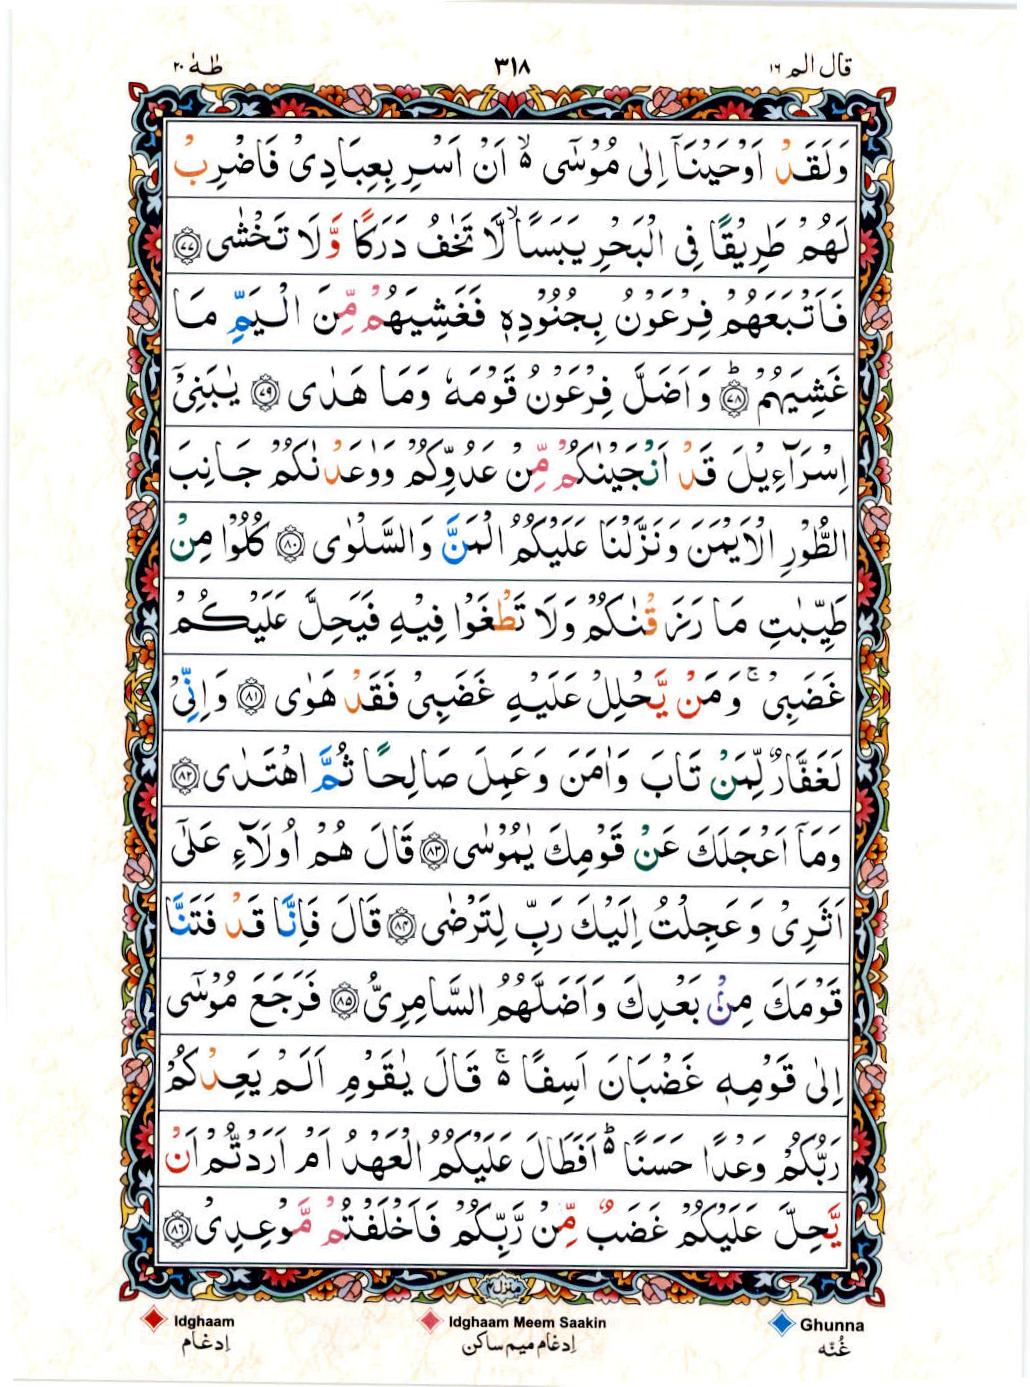 قال الم ١٦
٣١٨
طٰهٰ ٢٠
وَلَقَدْ اَوْحَيْنَآ اِلٰى مُوْسٰٓى ۙ۬ اَنْ اَسْرِ بِعِبَادِىْ فَاضْرِبْ
لَهُمْ طَرِيْقًا فِى الْبَحْرِ يَبَسًا ۙ لَّا تَخٰفُ دَرَكًا وَّلَا تَخْشٰى ﴿٧٧﴾
فَاَتْبَعَهُمْ فِرْعَوْنُ بِجُنُوْدِهٖ فَغَشِيَهُمْ مِّنَ الْيَمِّ مَا
غَشِيَهُمْ ؕ ﴿٧٨﴾ وَاَضَلَّ فِرْعَوْنُ قَوْمَهٗ وَمَا هَدٰى ﴿٧٩﴾ يٰبَنِىْٓ
اِسْرَآءِيْلَ قَدْ اَنْجَيْنٰكُمْ مِّنْ عَدُوِّكُمْ وَوٰعَدْنٰكُمْ جَانِبَ
الطُّوْرِ الْاَيْمَنَ وَنَزَّلْنَا عَلَيْكُمُ الْمَنَّ وَالسَّلْوٰى ﴿٨٠﴾ كُلُوْا مِنْ
طَيِّبٰتِ مَا رَزَقْنٰكُمْ وَلَا تَطْغَوْا فِيْهِ فَيَحِلَّ عَلَيْكُمْ
غَضَبِىْ ۚ وَمَنْ يَّحْلِلْ عَلَيْهِ غَضَبِىْ فَقَدْ هَوٰى ﴿٨١﴾ وَاِنِّىْ
لَغَفَّارٌ لِّمَنْ تَابَ وَاٰمَنَ وَعَمِلَ صَالِحًا ثُمَّ اهْتَدٰى ﴿٨٢﴾
وَمَآ اَعْجَلَكَ عَنْ قَوْمِكَ يٰمُوْسٰى ﴿٨٣﴾ قَالَ هُمْ اُولَآءِ عَلٰٓى
اَثَرِىْ وَعَجِلْتُ اِلَيْكَ رَبِّ لِتَرْضٰى ﴿٨٤﴾ قَالَ فَاِنَّا قَدْ فَتَنَّا
قَوْمَكَ مِنْۢ بَعْدِكَ وَاَضَلَّهُمُ السَّامِرِىُّ ﴿٨٥﴾ فَرَجَعَ مُوْسٰٓى
اِلٰى قَوْمِهٖ غَضْبَانَ اَسِفًا ۬ۚ قَالَ يٰقَوْمِ اَلَمْ يَعِدْكُمْ
رَبُّكُمْ وَعْدًا حَسَنًا ۬ؕ اَفَطَالَ عَلَيْكُمُ الْعَهْدُ اَمْ اَرَدْتُّمْ اَنْ
يَّحِلَّ عَلَيْكُمْ غَضَبٌ مِّنْ رَّبِّكُمْ فَاَخْلَفْتُمْ مَّوْعِدِىْ ﴿٨٦﴾
منزل ٤
Idghaam
Idghaam Meem Saakin
Ghunna
إدغام
إدغام ميم ساكن
غُنّه